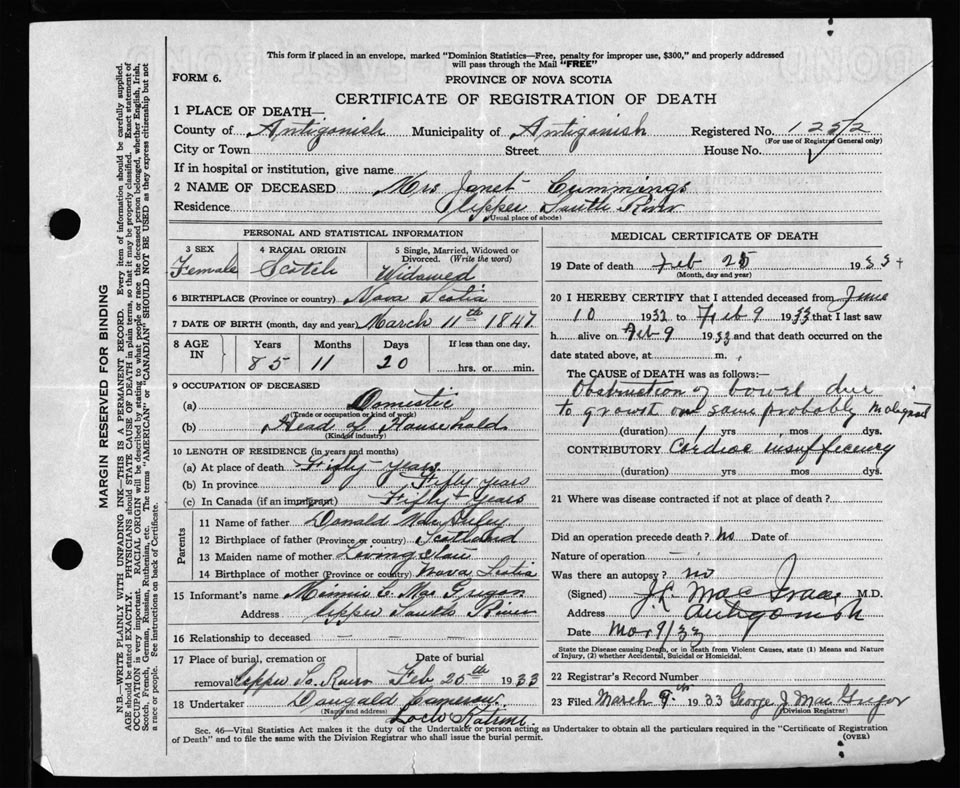 This form if placed in an envelope, marked "Dominion Statistics—Free, penalty for improper use, $300," and properly addressed
will pass through the Mail "FREE"
FORM 6.
PROVINCE OF NOVA SCOTIA
CERTIFICATE OF REGISTRATION OF DEATH
1 PLACE OF DEATH—
County of Antigonish Municipality of Antigonish Registered No. 1252
(For use of Registrar General only)
City or Town Street House No.
If in hospital or institution, give name
2 NAME OF DECEASED Mrs Janet Cummings
Residence Upper South River
(Usual place of abode)
PERSONAL AND STATISTICAL INFORMATION
3 SEX 4 RACIAL ORIGIN 5 Single, Married, Widowed or
Divorced. (Write the word)
Female Scotch Widowed
6 BIRTHPLACE (Province or country) Nova Scotia
7 DATE OF BIRTH (month, day and year) March 11th 1847
8 AGE IN Years Months Days If less than one day,
85 11 20 hrs. or min.
9 OCCUPATION OF DECEASED
(a) Domestic
(Trade or occupation or kind of work)
(b) Head of Household
(Kind of industry)
10 LENGTH OF RESIDENCE (in years and months)
(a) At place of death Fifty years
(b) In province Fifty years
(c) In Canada (if an immigrant) Fifty years
Parents
11 Name of father Donald
12 Birthplace of father (Province or country) Scotland
13 Maiden name of mother
14 Birthplace of mother (Province or country) Nova Scotia
15 Informant's name Minnie C. Mac Grigor
Address Upper South River
16 Relationship to deceased — — —
17 Place of burial, cremation or removal Upper So. River Date of burial Feb 25th 1933
18 Undertaker Dougald
(Name and address)
Loch Katrine.
MEDICAL CERTIFICATE OF DEATH
19 Date of death Feb 25 1933
(Month, day and year)
20 I HEREBY CERTIFY that I attended deceased from June
10 1932 to Feb 9 1933 that I last saw
h alive on Feb 9 1933 and that death occurred on the
date stated above, at m.
The CAUSE of DEATH was as follows:—
Obstruction of bowel due
to growth on same probably malignant
(duration) 1 yrs mos dys.
CONTRIBUTORY Cardiac insufficiency
(duration) yrs mos dys.
21 Where was disease contracted if not at place of death?
Did an operation precede death? no Date of
Nature of operation —
Was there an autopsy? no
(Signed) J.C. MacIsaac M.D.
Address Antigonish
Date Mar 9/33
State the Disease causing Death, or in death from Violent Causes, state (1) Means and Nature
of Injury, (2) whether Accidental, Suicidal or Homicidal.
22 Registrar's Record Number
23 Filed March 9th 1933 George J. MacGrigor
(Division Registrar)
Sec. 46—Vital Statistics Act makes it the duty of the Undertaker or person acting as Undertaker to obtain all the particulars required in the "Certificate of Registration
of Death" and to file the same with the Division Registrar who shall issue the burial permit.
(OVER)
MARGIN RESERVED FOR BINDING
N.B.—WRITE PLAINLY WITH UNFADING INK—THIS IS A PERMANENT RECORD. Every item of information should be carefully supplied.
AGE should be stated EXACTLY. PHYSICIANS should STATE CAUSE OF DEATH in plain terms, so that it may be properly classified. Exact statement of
OCCUPATION is very important. RACIAL ORIGIN will be described by stating to what people or race the deceased person belonged, whether English, Irish,
Scotch, French, German, Russian, Ruthenian, etc. The terms "AMERICAN" or "CANADIAN" SHOULD NOT BE USED as they express citizenship but not
a race or people. See instructions on back of Certificate.